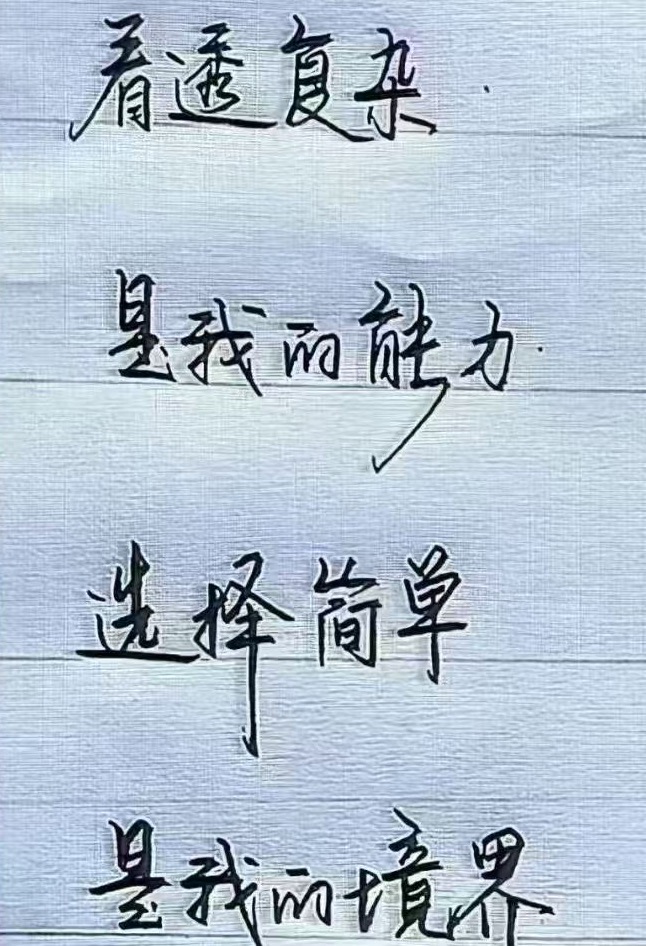 看透复杂
是我的能力
选择简单
是我的境界